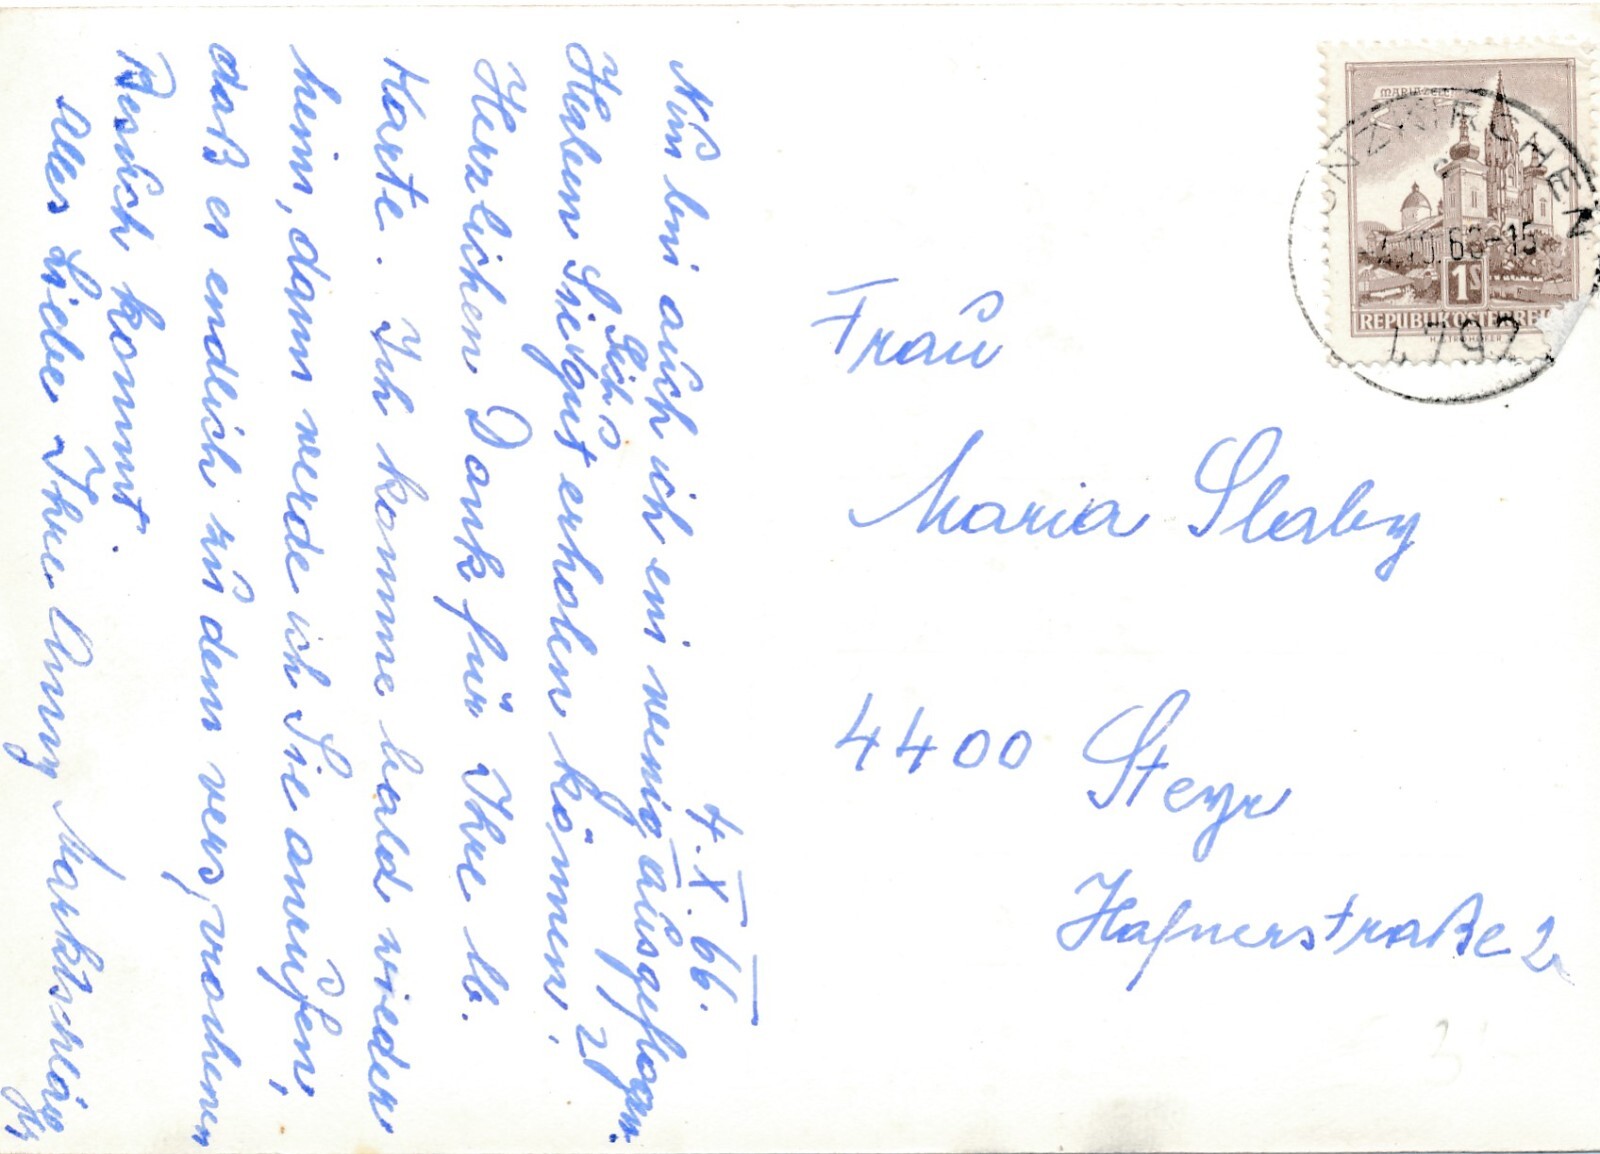 4. X. 66.
Nun bin auch ich ein wenig ausgeflogen.
Haben Sie sich gut erholen können?
Herzlichen Dank für Ihre lb.
Karte. Ich komme bald wieder
heim, dann werde ich Sie anrufen,
daß es endlich zu dem versprochenen
Besuch kommt.
Alles Liebe Ihre Anny
Frau
Maria Slaby
4400 Steyr
Hafnerstraße 2
MARIAZELL
1S
REPUBLIK ÖSTERREICH
4.10.66-15
4792